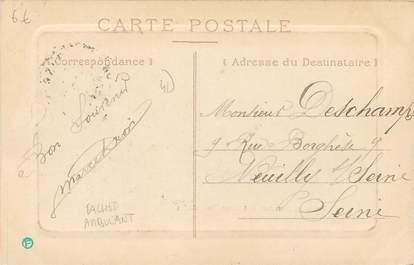 6€
CARTE POSTALE
Correspondance )
( Adresse du Destinataire )
Bon Souvenir
Monsieur Deschamps
9 Rue Borghèse 9
Neuilly s/ Seine
Seine
AMBULANT